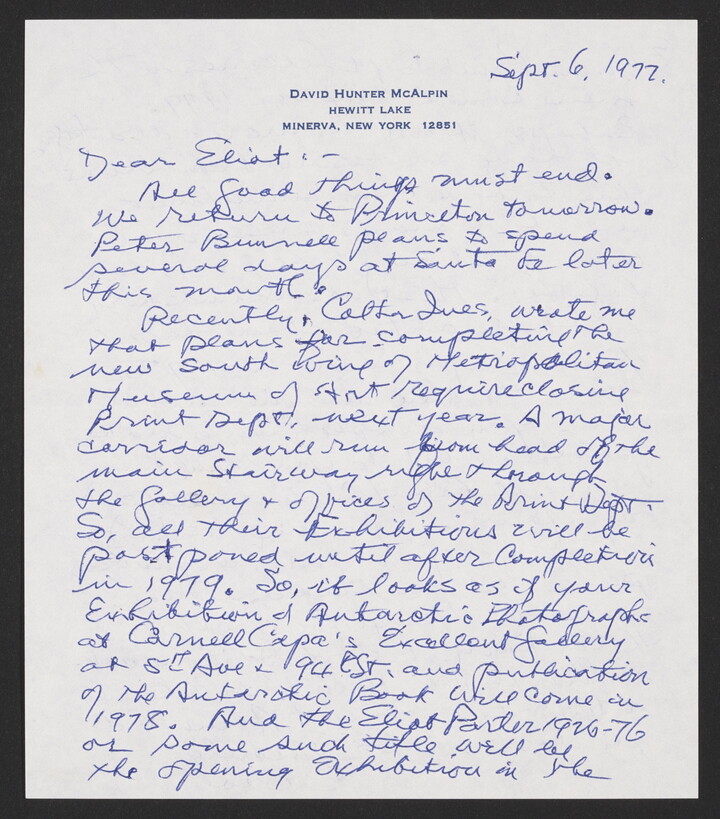 Sept. 6, 1977.
DAVID HUNTER MCALPIN
HEWITT LAKE
MINERVA, NEW YORK 12851
Dear Eliot: -
All good things must end.
We return to Princeton tomorrow.
Peter Bunnell plans to spend
several days at Santa Fe later
this month.
Recently, Colta Ives, wrote me
that plans for completing the
new South Wing of Metropolitan
Museum of Art require closing
Print Dept. next year. A major
corridor will run from head of the
main stairway right through
the Gallery + offices of the Print Dept.
So, all their Exhibitions will be
postponed until after Completion
in 1979. So, it looks as if your
Exhibition of Antarctic Photographs
at Cornell Capa's Excellent Gallery
at 5th Ave + 94th St. and publication
of the Antarctic Book will come in
1978. And the Eliot Porter 1926-76
or some such title will be
the opening Exhibition in the